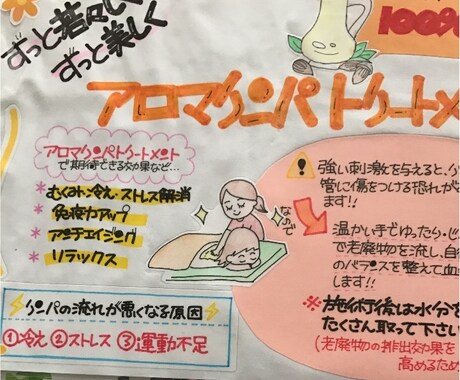 ずっと若々しく
ずっと美しく
100%
アロマリンパトリートメ
アロマリンパトリートメント
で期待できる効果など…
*むくみ・冷え・ストレス解消
*免疫力アップ
*アンチエイジング
*リラックス
なでなで
リンパの流れが悪くなる原因
①冷え ②ストレス ③運動不足
強い刺激を与えると、
管に傷をつける恐れが
ます!!
温かい手でゆったり・
で老廃物を流し、自
のバランスを整えて血
します!!
※施術後は水分を
たくさん取って下さい
(老廃物の排出効果を
高めるため